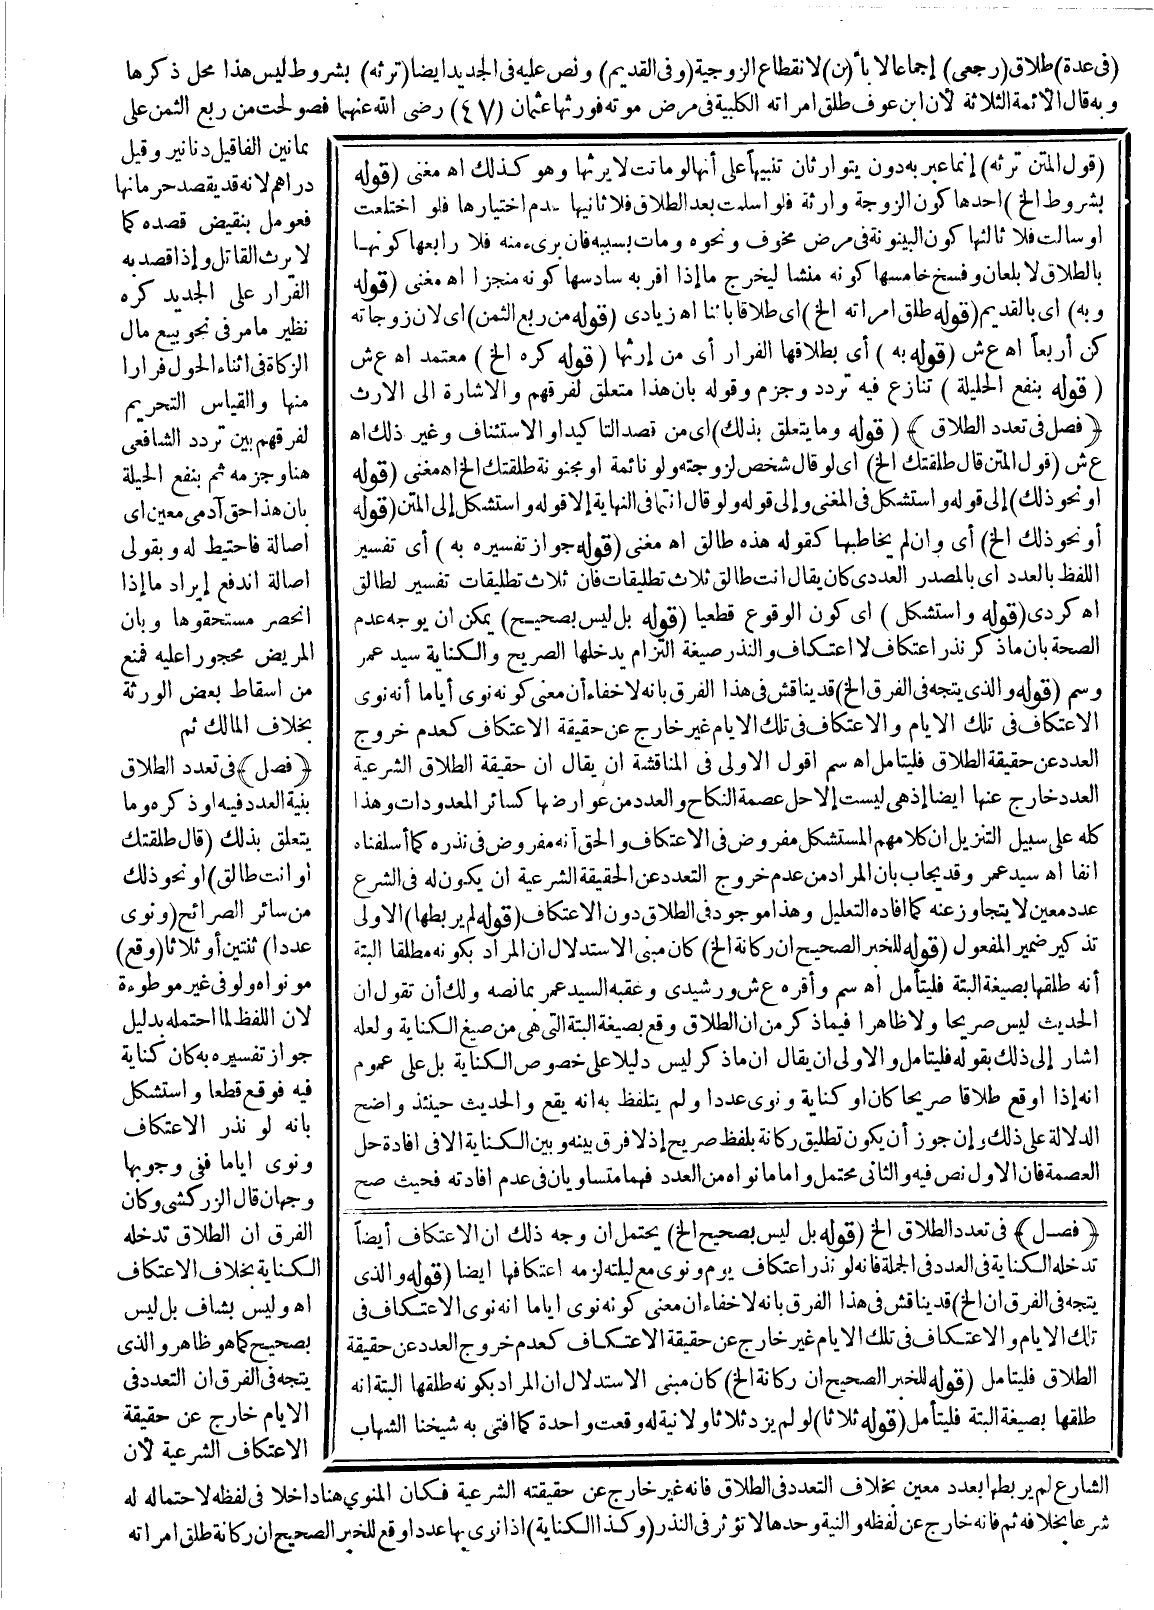 (فى عدة) طلاق (رجعى) إجماعا لا بأ(ئن) لانقطاع الزوجية (وفى القديم) ونص عليه فى الجديد ايضا (ترثه) بشروط ليس هذا محل ذكرها
وبه قال الأئمة الثلاثة لأن ابن عوف طلق امراته الكلبية فى مرض موته فورثها عثمان (٤٧) رضى الله عنهما فصولحت من ربع الثمن على
بمانين الفاقيل دنانير وقيل
دراهم لانه قد يقصد حرمانها
فعومل بنقيض قصده كما
لا يرث القاتل وإذا قصد به
الفرار على الجديد كره
نظير مامر فى نحو بيع مال
الزكاة فى اثناء الحول فرارا
منها والقياس التحريم
لفرقهم بين تردد الشافعى
هنا وجزمه ثم بنفع الحيلة
بان هذا حق آدمى معين اى
اصالة فاحتيط له وبقولى
اصالة اندفع إيراد ما إذا
انحصر مستحقوها وبان
المريض محجور اعليه فمنع
من اسقاط بعض الورثة
بخلاف المالك ثم
﴿فصل﴾ فى تعدد الطلاق
بنية العدد فيه او ذكره وما
يتعلق بذلك (قال طلقتك
او انت طالق) او نحو ذلك
من سائر الصرائح (ونوى
عددا) ثنتين أو ثلاثا (وقع)
مونواه ولو فى غير موطوءة
لان اللفظ لما احتمله بدليل
جواز تفسيره به كان كناية
فيه فوقع قطعا واستشكل
بانه لو نذر الاعتكاف
ونوى اياما ففى وجوبها
وجهان قال الزركشى وكان
الفرق ان الطلاق تدخله
الكناية بخلاف الاعتكاف
اه وليس بشاف بل ليس
بصحيح كما هو ظاهر والذى
يتجه فى الفرق ان التعدد فى
الايام خارج عن حقيقة
الاعتكاف الشرعية لأن
(قول المتن ترثه) إنما عبر به دون يتوارثان تنبيهاً على أنها لو ماتت لا يرثها وهو كذلك اه مغنى (قوله
بشروط الخ) احدها كون الزوجة وارثة فلو اسلمت بعد الطلاق فلا ثانيها عدم اختيارها فلو اختلعت
او سالت فلا ثالثها كون البينونة فى مرض مخوف ونحوه ومات بسببه فان برىء منه فلا رابعها كونها
بالطلاق لا بلعان وفسخ خامسها كونه منشا ليخرج ما إذا اقر به سادسها كونه منجزا اه مغنى (قوله
وبه) اى بالقديم (قوله طلق امراته الخ) اى طلاقا بائنا اه زيادى (قوله من ربع الثمن) اى لان زوجاته
كن أربعاً اه ع ش (قوله به) أى بطلاقها الفرار أى من إرثها (قوله كره الخ) معتمد اه ع ش
(قوله بنفع الحليلة) تنازع فيه تردد وجزم وقوله بان هذا متعلق لفرقهم والاشارة الى الارث
﴿فصل فى تعدد الطلاق﴾ (قوله وما يتعلق بذلك) اى من قصد التاكيد او الاستئناف وغير ذلك اه
ع ش (قول المتن قال طلقتك الخ) اى لو قال شخص لزوجته ولو نائمة او مجنونة طلقتك الخ اه مغنى (قوله
او نحو ذلك) إلى قوله واستشكل فى المغنى وإلى قوله ولو قال انتما فى النهاية إلا قوله واستشكل إلى المتن (قوله
أو نحو ذلك الخ) أى وان لم يخاطبها كقوله هذه طالق اه مغنى (قوله جواز تفسيره به) أى تفسير
اللفظ بالعدد اى بالمصدر العددى كان يقال انت طالق ثلاث تطليقات فان ثلاث تطليقات تفسير لطالق
اه كردى (قوله واستشكل) اى كون الوقوع قطعيا (قوله بل ليس بصحيح) يمكن ان يوجه عدم
الصحة بان ما ذكر نذر اعتكاف لا اعتكاف والنذر صيغة التزام يدخلها الصريح والكناية سيد عمر
وسم (قوله والذى يتجه فى الفرق الخ) قد يناقش فى هذا الفرق بانه لا خفاء أن معنى كونه نوى أياما أنه نوى
الاعتكاف فى تلك الايام والاعتكاف فى تلك الايام غير خارج عن حقيقة الاعتكاف كعدم خروج
العدد عن حقيقة الطلاق فليتامل اه سم اقول الاولى فى المناقشة ان يقال ان حقيقة الطلاق الشرعية
العدد خارج عنها ايضا إذ هى ليست إلا حل عصمة النكاح والعدد من عوارضها كسائر المعدودات وهذا
كله على سبيل التنزيل ان كلامهم المستشكل مفروض فى الاعتكاف والحق أنه مفروض فى نذره كما أسلفناه
انفا اه سيد عمر وقد يجاب بان المراد من عدم خروج التعدد عن الحقيقة الشرعية ان يكون له فى الشرع
عدد معين لا يتجاوز عنه كما افاده التعليل وهذا موجود فى الطلاق دون الاعتكاف (قوله لم يربطها) الاولى
تذكير ضمير المفعول (قوله للخبر الصحيح ان ركانة الخ) كان مبنى الاستدلال ان المراد بكونه مطلقا البتة
أنه طلقها بصيغة البتة فليتأمل اه سم وأقره ع ش ورشيدى وعقبه السيد عمر بما نصه ولك أن تقول ان
الحديث ليس صريحا ولا ظاهرا فيما ذكر من ان الطلاق وقع بصيغة البتة التى هى من صيغ الكناية ولعله
اشار إلى ذلك بقوله فليتامل والاولى ان يقال ان ما ذكر ليس دليلا على خصوص الكناية بل على عموم
انه إذا اوقع طلاقا صريحا كان او كناية ونوى عددا ولم يتلفظ به انه يقع والحديث حينئذ واضح
الدلالة على ذلك وإن جوز أن يكون تطليق ركانة بلفظ صريح إذ لا فرق بينه وبين الكناية الا فى افادة حل
العصمة فان الاول نص فيه والثانى محتمل واما ما نواه من العدد فهما متساويان فى عدم افادته فحيث صح
﴿فصل﴾ فى تعدد الطلاق الخ (قوله بل ليس بصحيح الخ) يحتمل ان وجه ذلك ان الاعتكاف أيضاً
تدخله الكناية فى العدد فى الجملة فانه لو نذر اعتكاف يوم ونوى مع ليلته لزمه اعتكافها ايضا (قوله والذى
يتجه فى الفرق ان الخ) قد يناقش فى هذا الفرق بانه لا خفاء ان معنى كونه نوى اياما انه نوى الاعتكاف فى
تلك الايام والاعتكاف فى تلك الايام غير خارج عن حقيقة الاعتكاف كعدم خروج العدد عن حقيقة
الطلاق فليتامل (قوله للخبر الصحيح ان ركانة الخ) كان مبنى الاستدلال ان المراد بكونه طلقها البتة انه
طلقها بصيغة البتة فليتأمل (قوله ثلاثا) لو لم يزد ثلاثا ولا نية له وقعت واحدة كما افتى به شيخنا الشهاب
الشارع لم يربطها بعدد معين بخلاف التعدد فى الطلاق فانه غير خارج عن حقيقته الشرعية فكان المنوي هنا داخلا فى لفظه لاحتماله له
شرعا بخلافه ثم فانه خارج عن لفظه والنية وحدها لا تؤثر فى النذر (وكذا الكناية) اذا نوى بها عددا وقع للخبر الصحيح ان ركانة طلق امراته